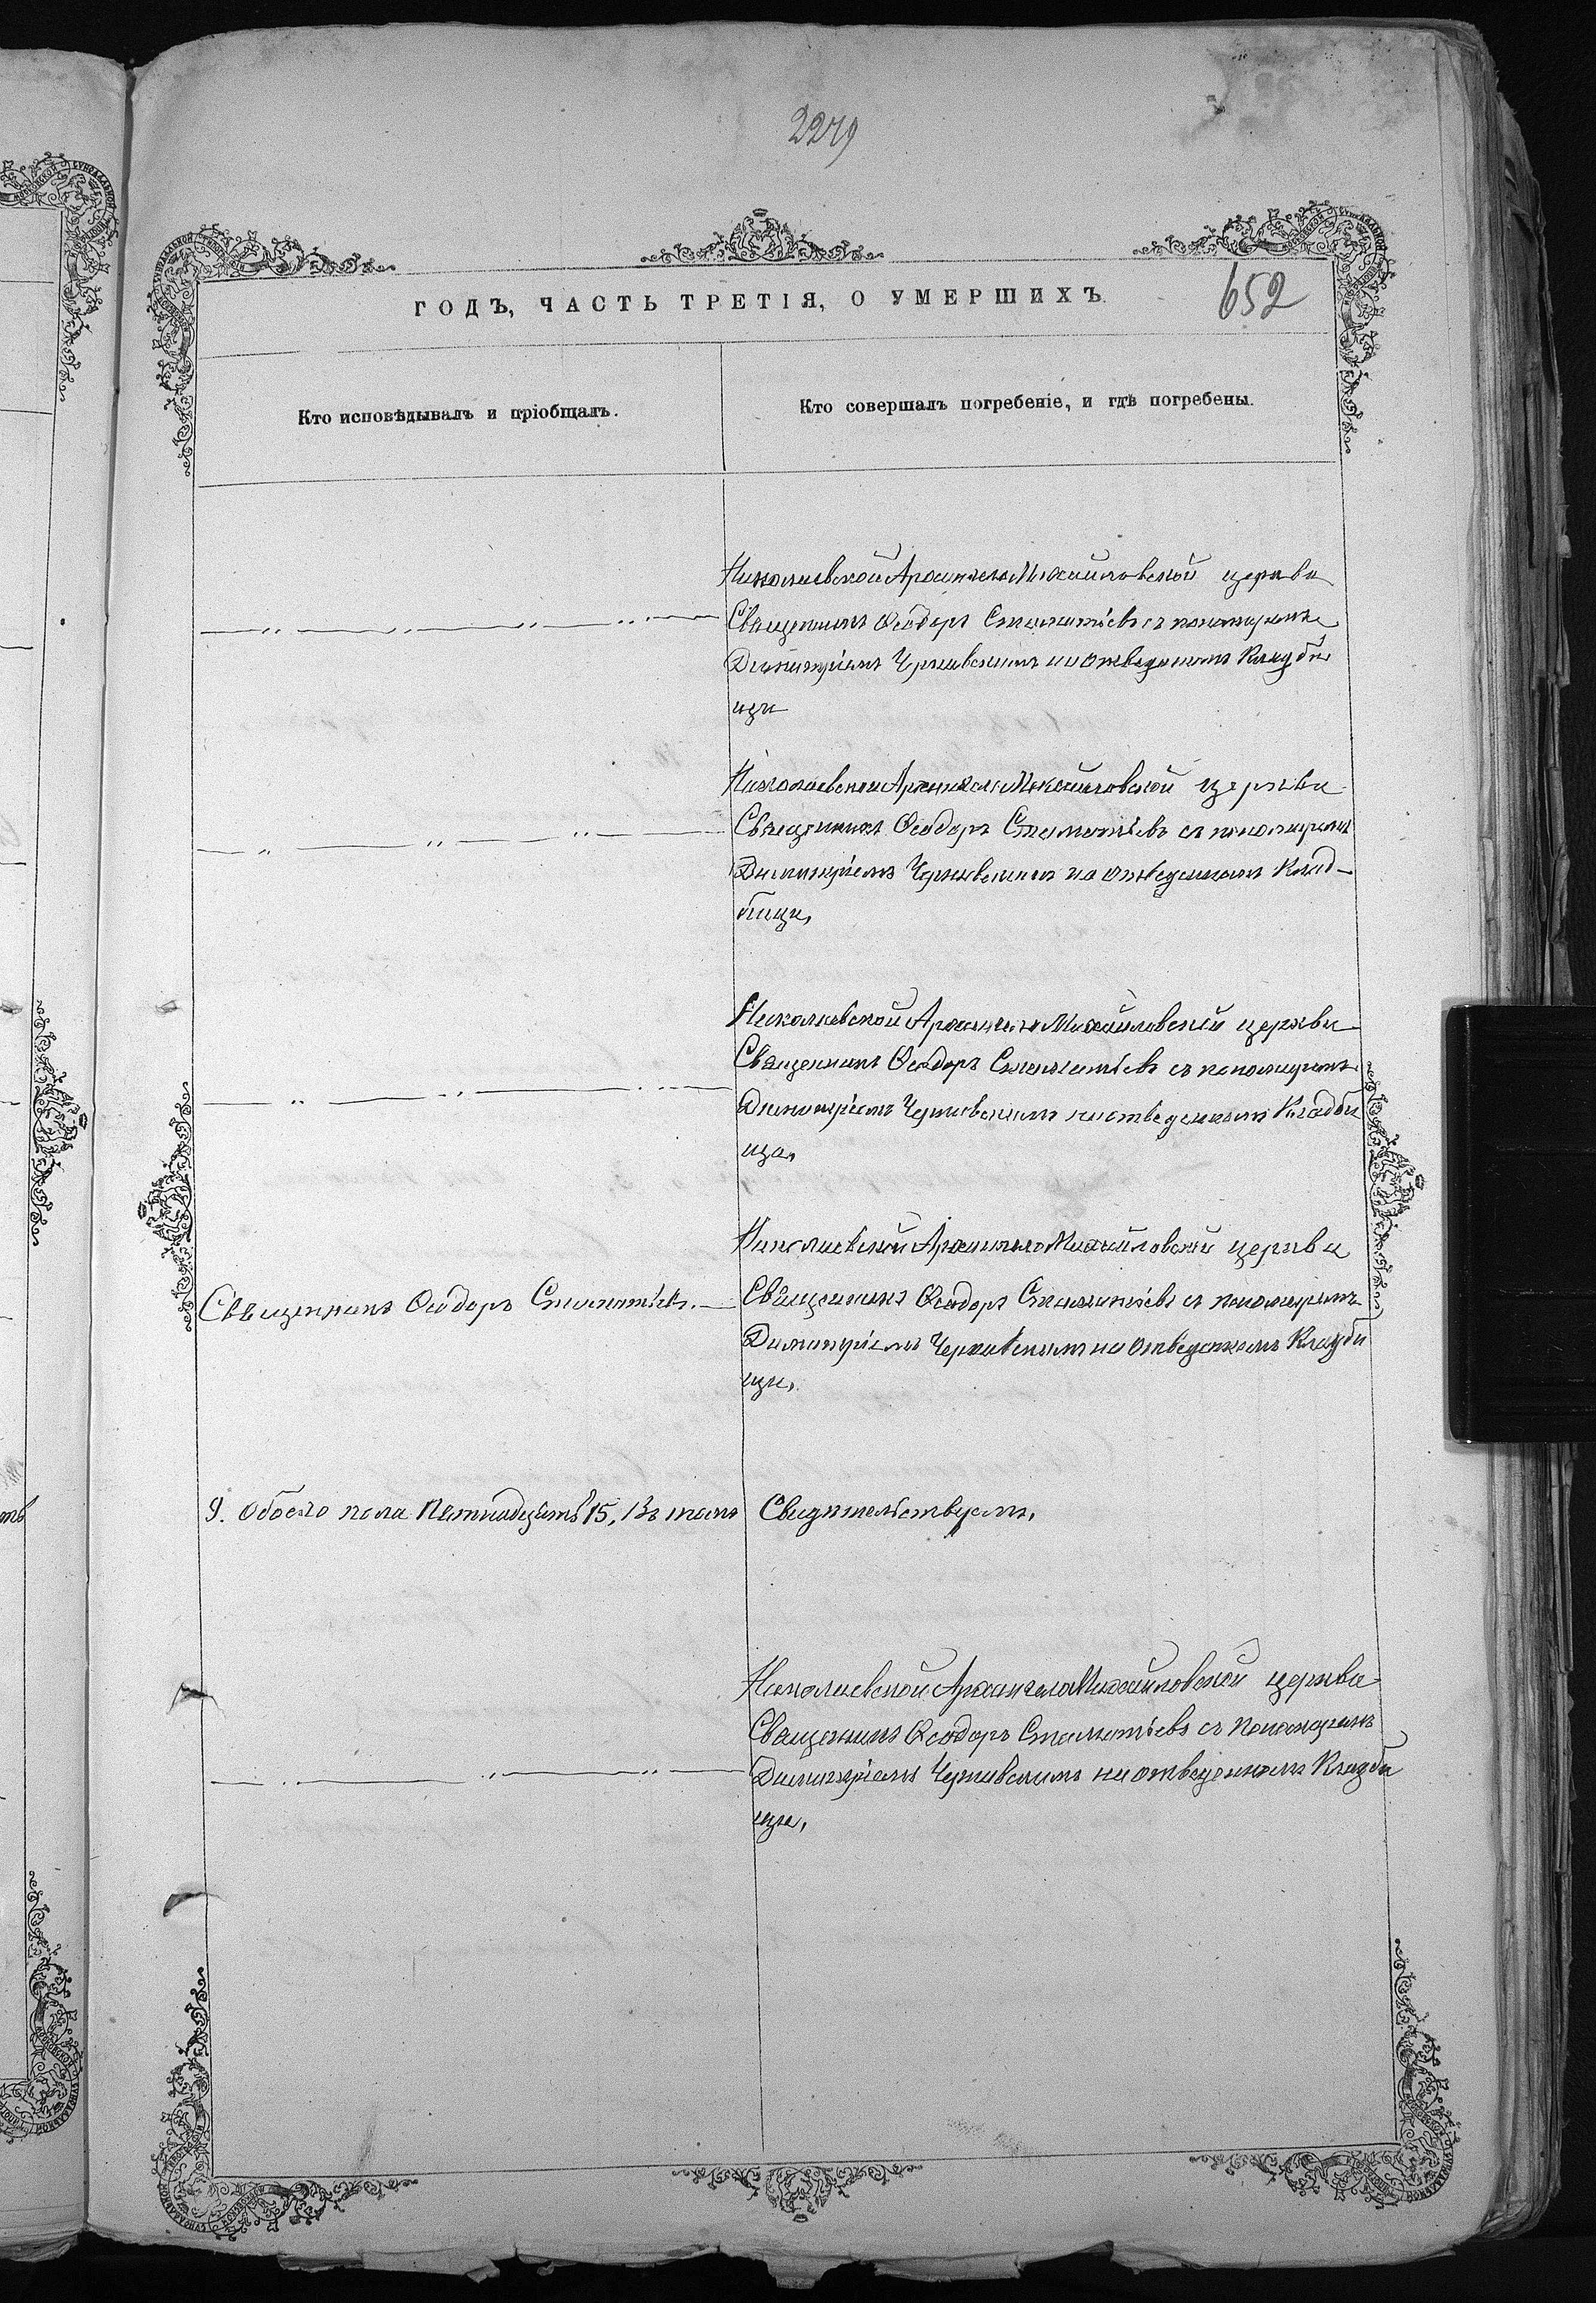 2279
ГОДЪ, ЧАСТЬ ТРЕТІЯ, О УМЕРШИХЪ.
652
Кто исповѣдывалъ и пріобщалъ.
Кто совершалъ погребеніе, и гдѣ погребены.
Николаевской Архангело Михайловской церкви
Священникъ Ѳеодоръ Стаматіевъ съ пономаремъ
Димитріемъ Чернявскимъ на отведеномъ Кладби
щи
Николаевской Архангело Михайловской церкви
Священникъ Ѳеодоръ Стаматіевъ съ пономаремъ
Димитріемъ Чернявскимъ на отведенномъ Клад-
бищи,
Николаевской Архангело Михайловской церкви
Священникъ Ѳеодоръ Стаматіевъ съ пономаремъ
Димитріемъ Чернявскимъ на отведенномъ Кладби
ща,
Николаевской Архангело Михайловской церкви
Священникъ Ѳеодоръ Стаматіевъ.
Священникъ Ѳеодоръ Стаматіевъ съ пономаремъ
Димитріемъ Чернявскимъ на отведенномъ Кладби
щи,
9. обоего пола Пятнадцать 15, Въ томъ
Свидѣтельствуемъ,
Николаевской Архангело Михайловской церкви
Священникъ Ѳеодоръ Стаматіевъ съ Пономаремъ
Димитріемъ Чернявскимъ на отведенномъ Кладби
щи,